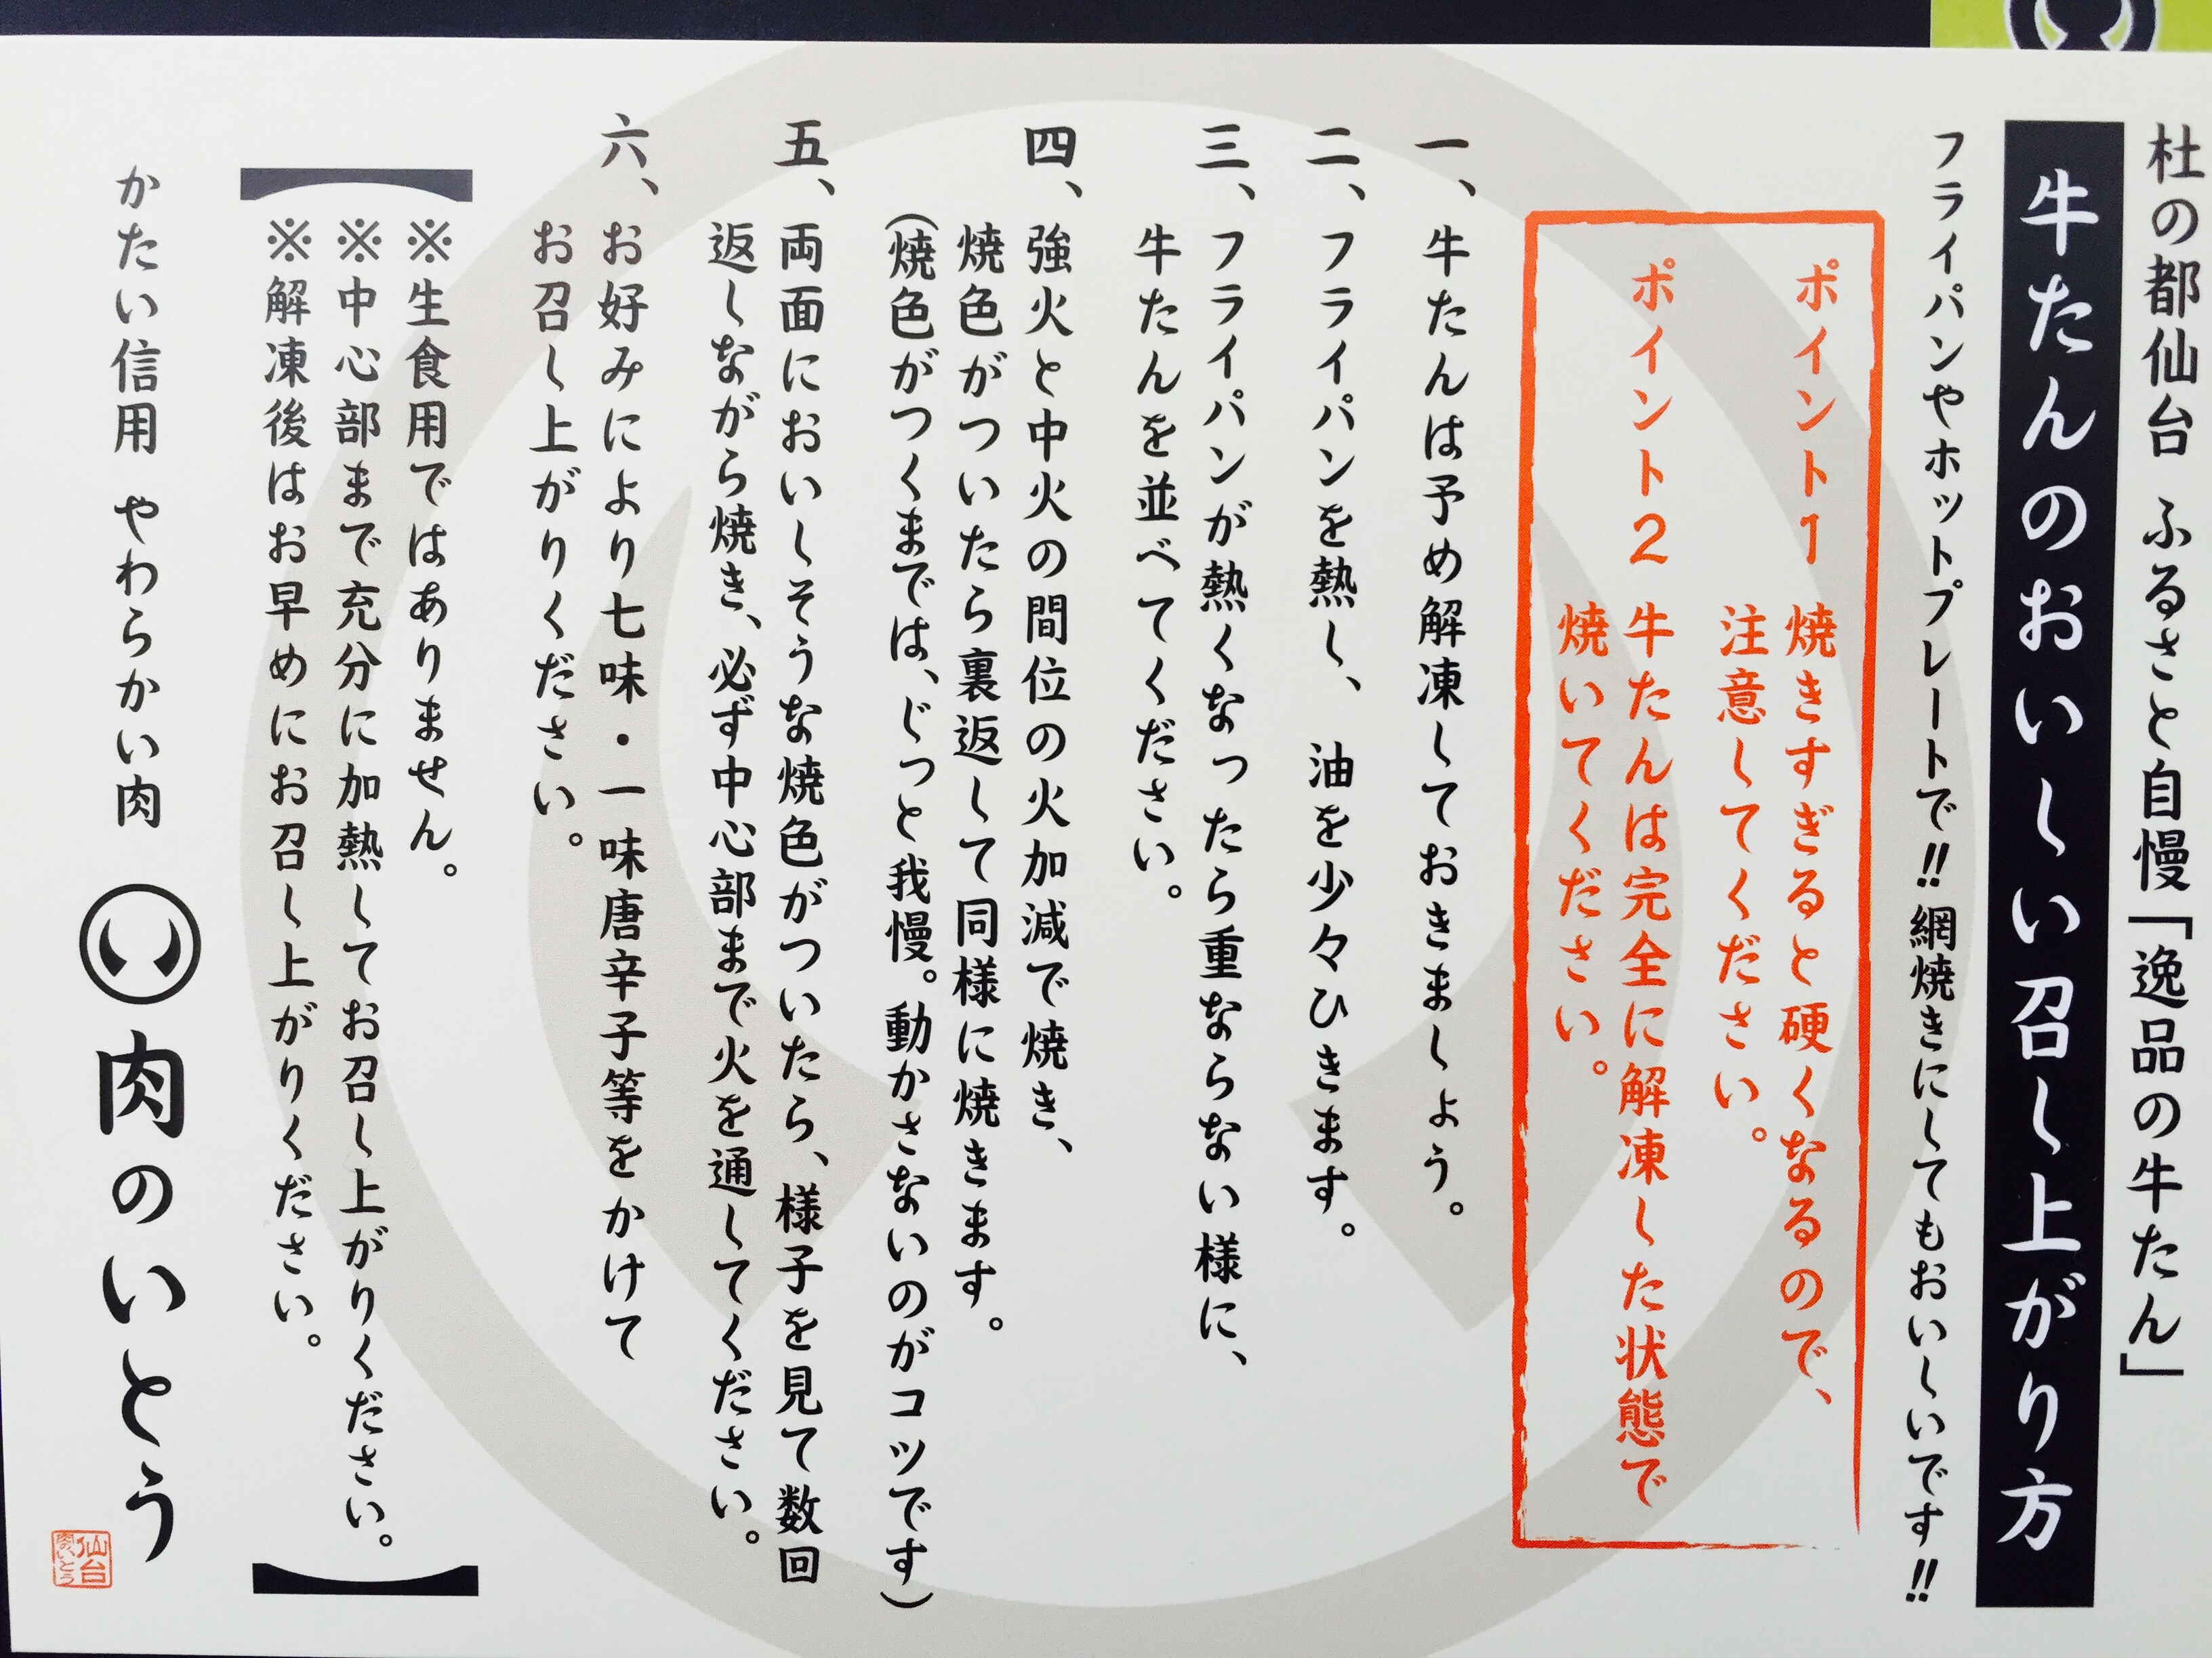 杜の都仙台 ふるさと自慢「逸品の牛たん」
牛たんのおいしい召し上がり方
フライパンやホットプレートで!!網焼きにしてもおいしいです!!
ポイント1 焼きすぎると硬くなるので、
注意してください。
ポイント2 牛たんは完全に解凍した状態で
焼いてください。
一、牛たんは予め解凍しておきましょう。
二、フライパンを熱し、油を少々ひきます。
三、フライパンが熱くなったら重ならない様に、
牛たんを並べてください。
四、強火と中火の間位の火加減で焼き、
焼色がついたら裏返して同様に焼きます。
(焼色がつくまでは、じっと我慢。動かさないのがコツです)
五、両面においしそうな焼色がついたら、様子を見て数回
返しながら焼き、必ず中心部まで火を通してください。
六、お好みにより七味・一味唐辛子等をかけて
お召し上がりください。
※生食用ではありません。
※中心部まで充分に加熱してお召し上がりください。
※解凍後はお早めにお召し上がりください。
かたい信用 やわらかい肉 肉のいとう
仙台
肉のいとう